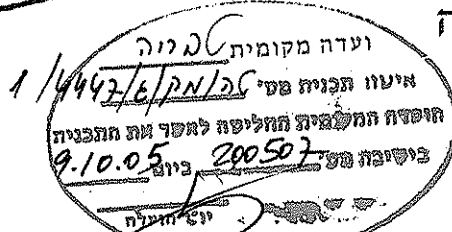 ועדה מקומית טבריה
אישור תכנית מס' טה/מק/ג/4447/1
הועדה המקומית החליטה לאשר את התכנית
בישיבה מס' 200507 ביום 9.10.05
יו"ר הועדה